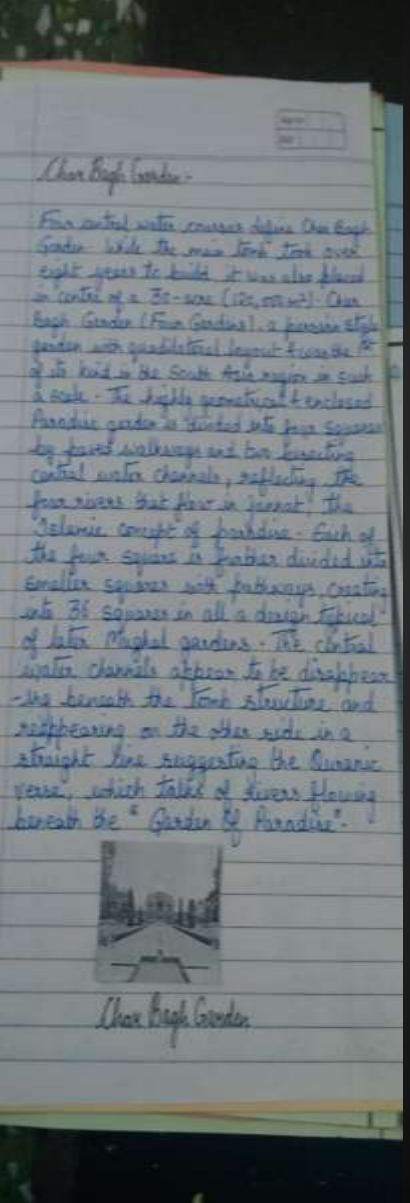 Char Bagh Garden -
Four central water courses define Char Bagh
Garden. While the main tomb took over
eight years to build, it was also placed
in centre of a 30-acre (120,000 m²). Char
Bagh Garden (Four Gardens), a persian style
garden with quadilateral layout & was the 1st
of its kind in the South Asia region in such
a scale. The highly geometrical & enclosed
Paradise garden is divided into four squares
by paved walkways and two bisecting
central water channels, reflecting the
four rivers that flow in jannat, the
Islamic concept of paradise. Each of
the four square is further divided into
smaller squares with pathways, creating
into 36 squares in all a design typical
of later Mughal gardens. The central
water channels appear to be disappear
-ing beneath the tomb structure and
reappearing on the other side in a
straight line suggesting the Quranic
verse, which talks of rivers flowing
beneath the "Garden Of Paradise".
Char Bagh Garden